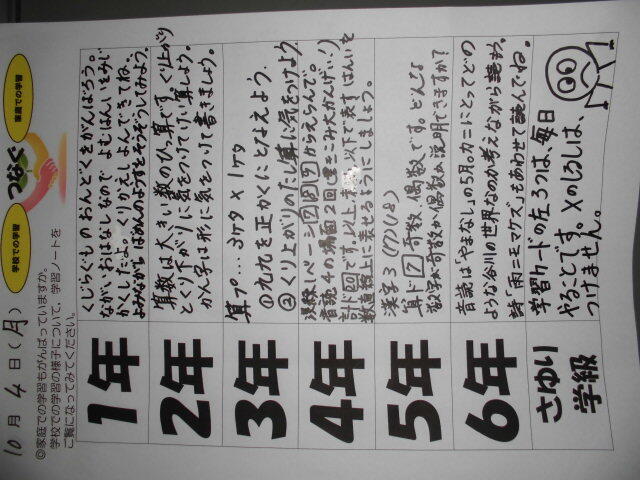 10月4日（月）
学校での学習
つなぐ
家庭での学習
◎家庭での学習もがんばっていますか。
学校での学習の様子について、学習ノートを
ご覧になってみてください。
1年
くじらぐものおんどくをがんばろう。
ながいおはなしなので よむはんいをみじ
かくしたよ。くりかえしよんできてね。
よみながらばめんのようすをそうぞうしてみよう。
2年
算数は大きい数のひっ算です。くり上がり
とくり下がりに気をつけて計算しよう。
かん字は形に気をつけて書きましょう。
3年
算プ…3ケタ×1ケタ
①九九を正かくにとなえよう。
②くり上がりのたし算に気をつけよう
4年
音読4の場面2回
数直線上に表せるようにしましょう。
5年
漢字3 (17)(18)
算ド7 奇数、偶数です。どんな
数字が奇数か、偶数か説明できますか?
6年
音読は「やまなし」の5月。カニにとってどの
ような谷川の世界なのか考えながら読もう。
詩「雨ニモマケズ」もあわせて読んでね。
さゆり
学級
学習カードの左3つは、毎日
やることです。×のしるしは、
つけません。